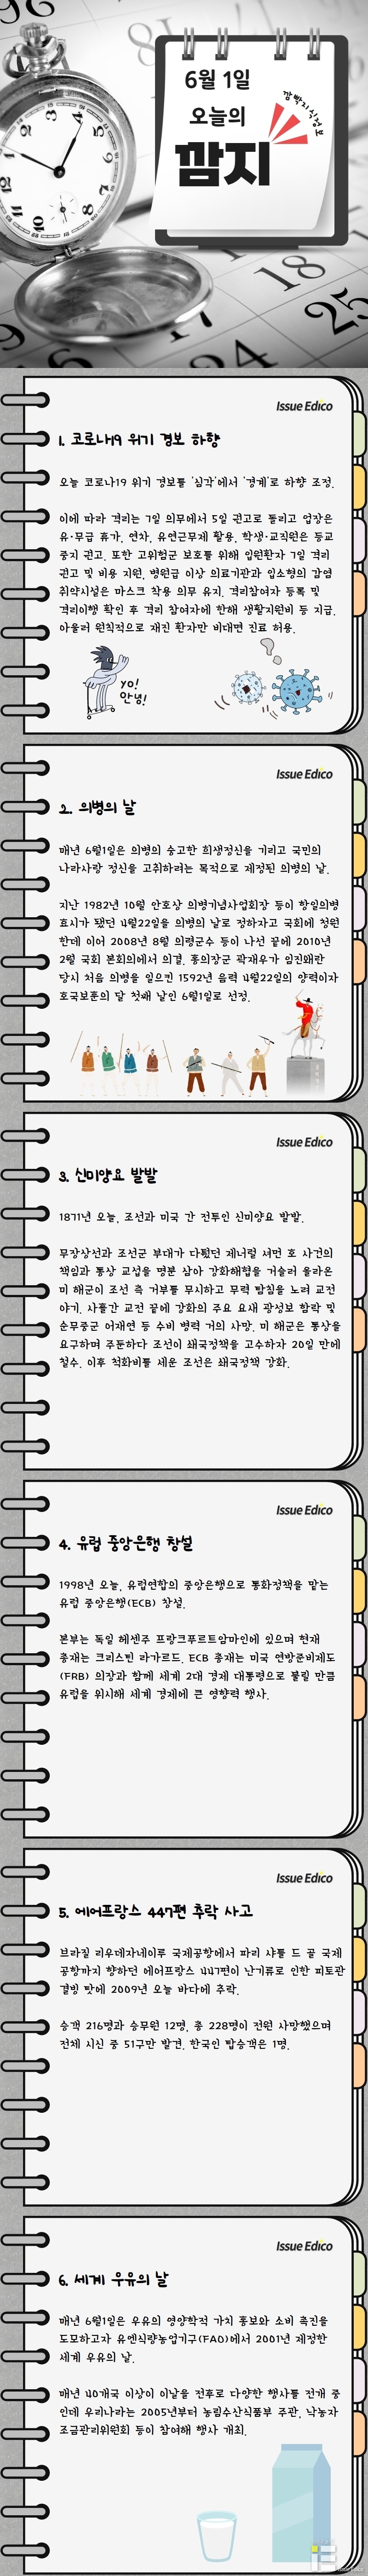 6월 1일
오늘의
깜지
깜빡지식정보
Issue Edico
1. 코로나19 위기 경보 하향
오늘 코로나19 위기 경보를 '심각'에서 '경계'로 하향 조정.
이에 따라 격리는 7일 의무에서 5일 권고로 돌리고 업장은
유·무급 휴가, 연차, 유연근무제 활용, 학생·교직원은 등교
중지 권고. 또한 고위험군 보호를 위해 입원환자 7일 격리
권고 및 비용 지원, 병원급 이상 의료기관과 입소형의 감염
취약시설은 마스크 착용 의무 유지. 격리참여자 등록 및
격리이행 확인 후 격리 참여자에 한해 생활지원비 등 지급.
아울러 원칙적으로 재진 환자만 비대면 진료 허용.
YO!
안녕!
Issue Edico
2. 의병의 날
매년 6월1일은 의병의 숭고한 희생정신을 기리고 국민의
나라사랑 정신을 고취하려는 목적으로 제정된 의병의 날.
지난 1982년 10월 안호상 의병기념사업회장 등이 항일의병
효시가 됐던 4월22일을 의병의 날로 정하자고 국회에 청원
한데 이어 2008년 8월 의령군수 등이 나선 끝에 2010년
2월 국회 본회의에서 의결. 홍의장군 곽재우가 임진왜란
당시 처음 의병을 일으킨 1592년 음력 4월22일의 양력이자
호국보훈의 달 첫째 날인 6월1일로 선정.
Issue Edico
3. 신미양요 발발
1871년 오늘, 조선과 미국 간 전투인 신미양요 발발.
무장상선과 조선군 부대가 다퉜던 제너럴 셔먼 호 사건의
책임과 통상 교섭을 명분 삼아 강화해협을 거슬러 올라온
미 해군이 조선 측 거부를 무시하고 무력 탐침을 노려 교전
야기. 사흘간 교전 끝에 강화의 주요 요새 광성보 함락 및
순무중군 어재연 등 수비 병력 거의 사망. 미 해군은 통상을
요구하며 주둔하다 조선이 쇄국정책을 고수하자 20일 만에
철수. 이후 척화비를 세운 조선은 쇄국정책 강화.
Issue Edico
4. 유럽 중앙은행 창설
1998년 오늘, 유럽연합의 중앙은행으로 통화정책을 맡는
유럽 중앙은행(ECB) 창설.
본부는 독일 헤센주 프랑크푸르트암마인에 있으며 현재
총재는 크리스틴 라가르드. ECB 총재는 미국 연방준비제도
(FRB) 의장과 함께 세계 2대 경제 대통령으로 불릴 만큼
유럽을 위시해 세계 경제에 큰 영향력 행사.
Issue Edico
5. 에어프랑스 447편 추락 사고
브라질 리우데자네이루 국제공항에서 파리 샤를 드 골 국제
공항까지 향하던 에어프랑스 447편이 난기류로 인한 피토관
결빙 탓에 2009년 오늘 바다에 추락.
승객 216명과 승무원 12명, 총 228명이 전원 사망했으며
전체 시신 중 51구만 발견. 한국인 탑승객은 1명.
Issue Edico
6. 세계 우유의 날
매년 6월1일은 우유의 영양학적 가치 홍보와 소비 촉진을
도모하고자 유엔식량농업기구(FAO)에서 2001년 제정한
세계 우유의 날.
매년 40개국 이상이 이날을 전후로 다양한 행사를 전개 중
인데 우리나라는 2005년부터 농림수산식품부 주관, 낙농자
조금관리위원회 등이 참여해 행사 개최.